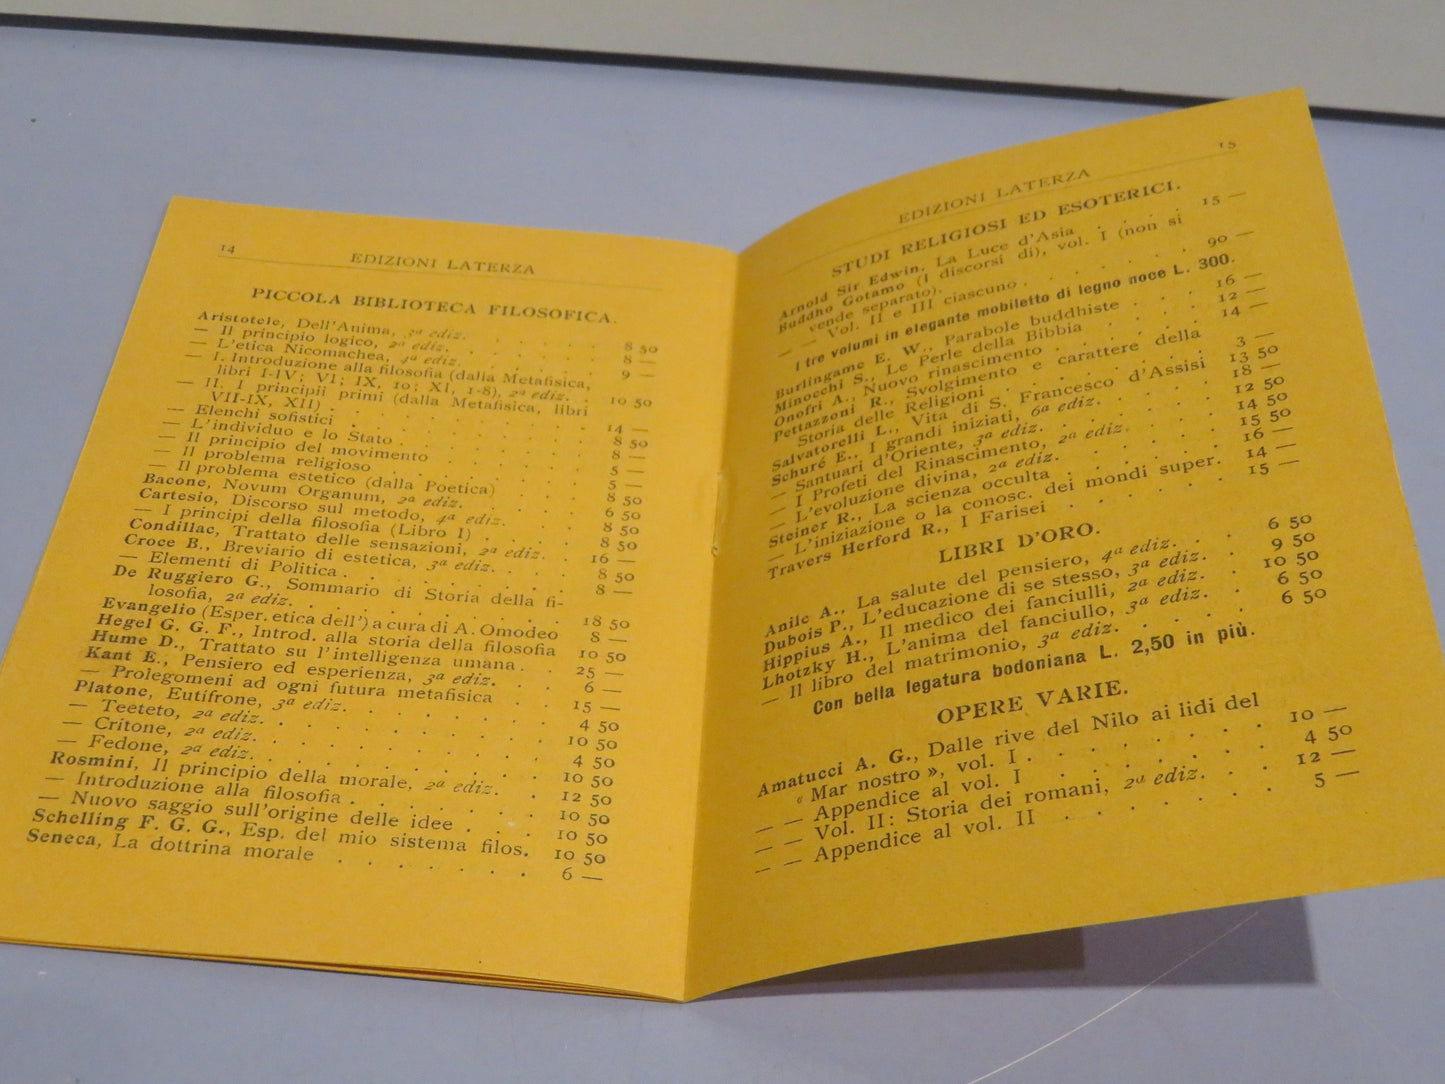 14
EDIZIONI LATERZA
PICCOLA BIBLIOTECA FILOSOFICA.
Aristotele, Dell'Anima, 3ª ediz. . . . . . 8 50
— Il principio logico, 2ª ediz. . . . . . 8 —
— L'etica Nicomachea, 4ª ediz. . . . . . 9 —
— I. Introduzione alla filosofia (dalla Metafisica,
libri I-IV; VI; IX, 10; XI, 1-8), 2ª ediz. . 10 50
— II. I principii primi (dalla Metafisica, libri
VII-IX, XII) . . . . . . . 14 —
— Elenchi sofistici . . . . . . . 8 50
— L'individuo e lo Stato . . . . . . 8 —
— Il principio del movimento . . . . . 5 —
— Il problema religioso . . . . . . 5 —
— Il problema estetico (dalla Poetica) . . . 8 50
Bacone, Novum Organum, 2ª ediz. . . . . 6 50
Cartesio, Discorso sul metodo, 4ª ediz. . . . 8 50
— I principi della filosofia (Libro I) . . . . 8 50
Condillac, Trattato delle sensazioni, 2ª ediz. . 16 —
Croce B., Breviario di estetica, 3ª ediz. . . . 8 50
— Elementi di Politica . . . . . . . 8 —
De Ruggiero G., Sommario di Storia della fi-
losofia, 2ª ediz. . . . . . . . . 18 50
Evangelio (Esper. etica dell') a cura di A. Omodeo 8 —
Hegel G. G. F., Introd. alla storia della filosofia 10 50
Hume D., Trattato su l'intelligenza umana . . 25 —
Kant E., Pensiero ed esperienza, 3ª ediz. . . 6 —
— Prolegomeni ad ogni futura metafisica . . 15 —
Platone, Eutifrone, 3ª ediz. . . . . . . 4 50
— Teeteto, 2ª ediz. . . . . . . . 10 50
— Critone, 2ª ediz. . . . . . . . 4 50
— Fedone, 2ª ediz. . . . . . . . 10 50
Rosmini, Il principio della morale, 2ª ediz. . . 12 50
— Introduzione alla filosofia . . . . . . 10 50
— Nuovo saggio sull'origine delle idee . . . 10 50
Schelling F. G. G., Esp. del mio sistema filos. 10 50
Seneca, La dottrina morale . . . . . . . 6 —
15
EDIZIONI LATERZA
STUDI RELIGIOSI ED ESOTERICI.
Arnold Sir Edwin, La Luce d'Asia . . . . 15 —
Buddho Gotamo (I discorsi di), vol. I (non si
vende separato).
— — Vol. II e III ciascuno . . . . . . 90 —
I tre volumi in elegante mobiletto di legno noce L. 300.
Burlingame E. W., Parabole buddhiste . . . 16 —
Minocchi S., Le Perle della Bibbia . . . . 12 —
Onofri A., Nuovo rinascimento . . . . . 14 —
Pettazzoni R., Svolgimento e carattere della
Storia delle Religioni . . . . . . . 3 —
Salvatorelli L., Vita di S. Francesco d'Assisi 13 50
Schuré E., I grandi iniziati, 6ª ediz. . . . 18 —
— Santuari d'Oriente, 3ª ediz. . . . . . 12 50
— I Profeti del Rinascimento, 2ª ediz. . . . 14 50
— L'evoluzione divina, 2ª ediz. . . . . . 15 50
Steiner R., La scienza occulta . . . . . . 16 —
— L'iniziazione o la conosc. dei mondi super. 14 —
Travers Herford R., I Farisei . . . . . . 15 —
LIBRI D'ORO.
Anile A., La salute del pensiero, 4ª ediz. . . 6 50
Dubois P., L'educazione di se stesso, 3ª ediz. . 9 50
Hippius A., Il medico dei fanciulli, 2ª ediz. . 10 50
Lhotzky H., L'anima del fanciullo, 3ª ediz. . . 6 50
— Il libro del matrimonio, 3ª ediz. . . . . 6 50
Con bella legatura bodoniana L. 2,50 in più.
OPERE VARIE.
Amatucci A. G., Dalle rive del Nilo ai lidi del
« Mar nostro », vol. I . . . . . . . 10 —
— — Appendice al vol. I . . . . . . . 4 50
— — Vol. II: Storia dei romani, 2ª ediz. . . . 12 —
— — Appendice al vol. II . . . . . . . 5 —